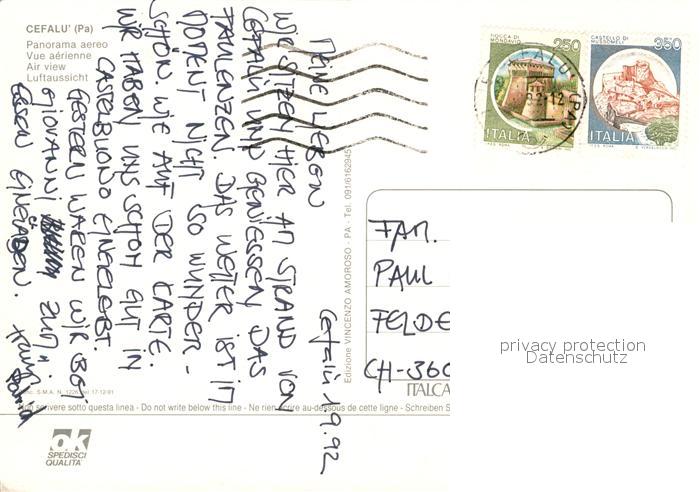 CEFALU' (Pa)
Panorama aereo
Vue aérienne
Air view
Luftaussicht
ROCCA DI MONDAVIO
250
ITALIA
CASTELLO DI MUSSOMELI
950
ITALIA
CEFALU (PA)
Cefalù 1.9.92
MEINE LIEBEN
WIR SITZEN HIER AM STRAND VON
CEFALÙ UND GENIESSEN DAS
FAULENZEN. DAS WETTER IST IM
MOMENT NICHT SO WUNDER-
SCHÖN. WIE AUF DER KARTE.
WIR HABEN UNS SCHON GUT IN
CASTELBUONO EINGELEBT.
GESTERN WAREN WIR BEI
GIOVANNI ZUM
ESSEN EINGELADEN.
FAM.
PAUL
FELDE
CH-360
Edizione VINCENZO AMOROSO - PA - Tel. 091/6162945
ITALCA
S.M.A. N. 1226 del 17-12-91
Non scrivere sotto questa linea - Do not write below this line - Ne rien écrire au-dessous de cette ligne - Schreiben S
ok
SPEDISCI
QUALITA'
privacy protection
Datenschutz